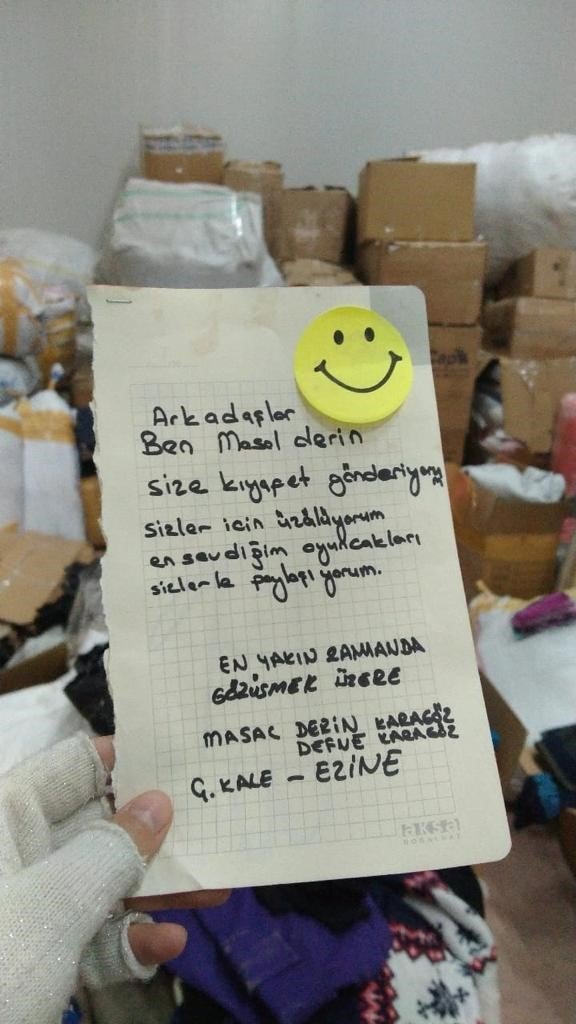 Arkadaşlar
Ben Masal derin
size kıyafet gönderiyorum
sizler için üzülüyorum
en sevdiğim oyuncakları
sizlerle paylaşıyorum.
EN YAKIN ZAMANDA
GÖRÜŞMEK ÜZERE
MASAL DERİN KARAGÖZ
DEFNE KARAGÖZ
Ç.KALE - EZİNE
aksa
DOĞALGAZ